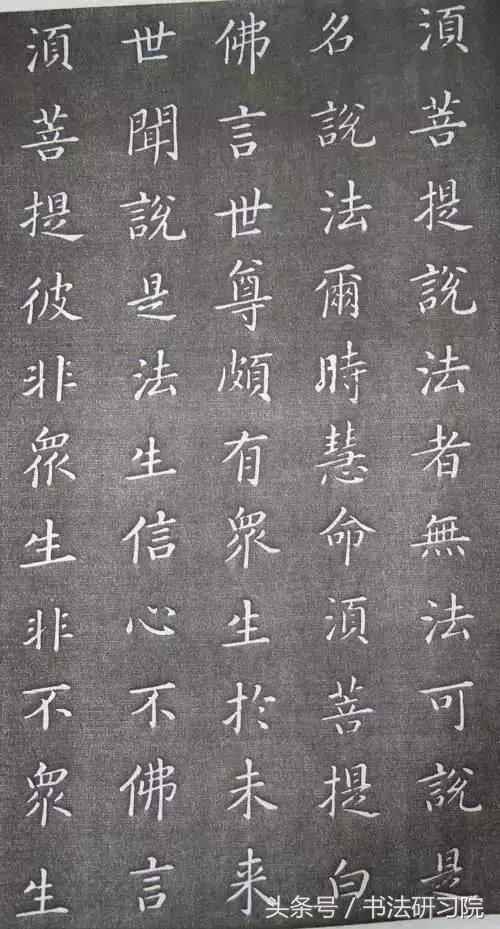 湏菩提說法者無法可說是
名說法爾時慧命湏菩提白
佛言世尊頗有眾生於未来
世聞說是法生信心不佛言
湏菩提彼非眾生非不眾生
头条号/书法研习院